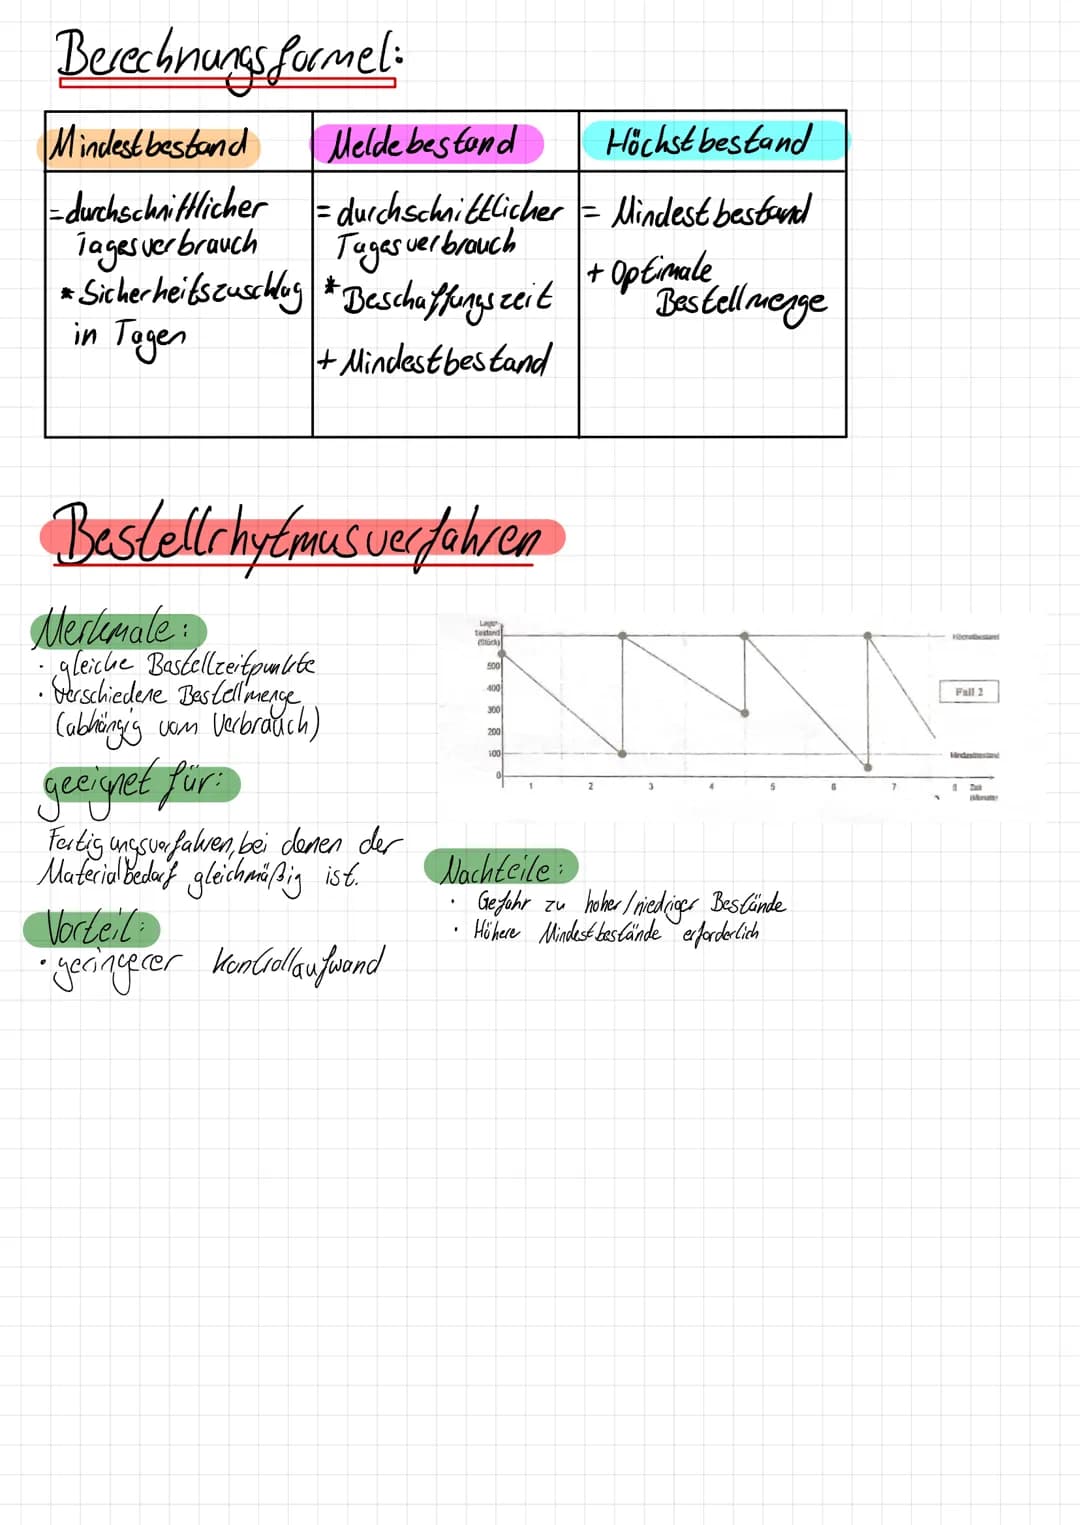 Berechnungsformel:
Mindestbestand
Meldebestand
Höchstbestand
= durchschnittlicher
Tagesverbrauch
* Sicherheitszuschlag
in Tagen
= durchschnittlicher
Tagesverbrauch
* Beschaffungszeit
+ Mindestbestand
= Mindestbestand
+ Optimale
Bestellmenge
Bestellrhytmusverfahren
Merkmale:
· gleiche Bestellzeitpunkte
· Verschiedene Bestellmenge
(abhängig vom Verbrauch)
geeignet für:
Fertigungsverfahren, bei denen der
Materialbedarf gleichmäßig ist.
Vorteil:
· geringerer Kontrollaufwand
Lager
bestand
(Stück)
500
400
300
200
100
0
1 2 3 4 5 6 7 8 Zeit
(Monate)
Höchstbestand
Fall 2
Mindestbestand
Nachteile:
· Gefahr zu hoher/niedriger Bestände
· Höhere Mindestbestände erforderlich